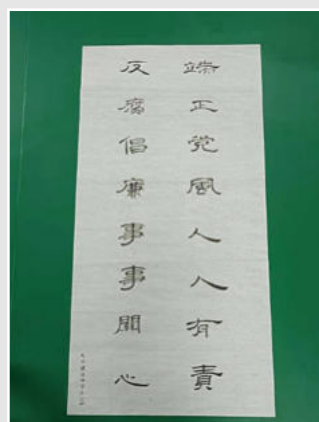 端正党風人人有責
反腐倡廉事事関心